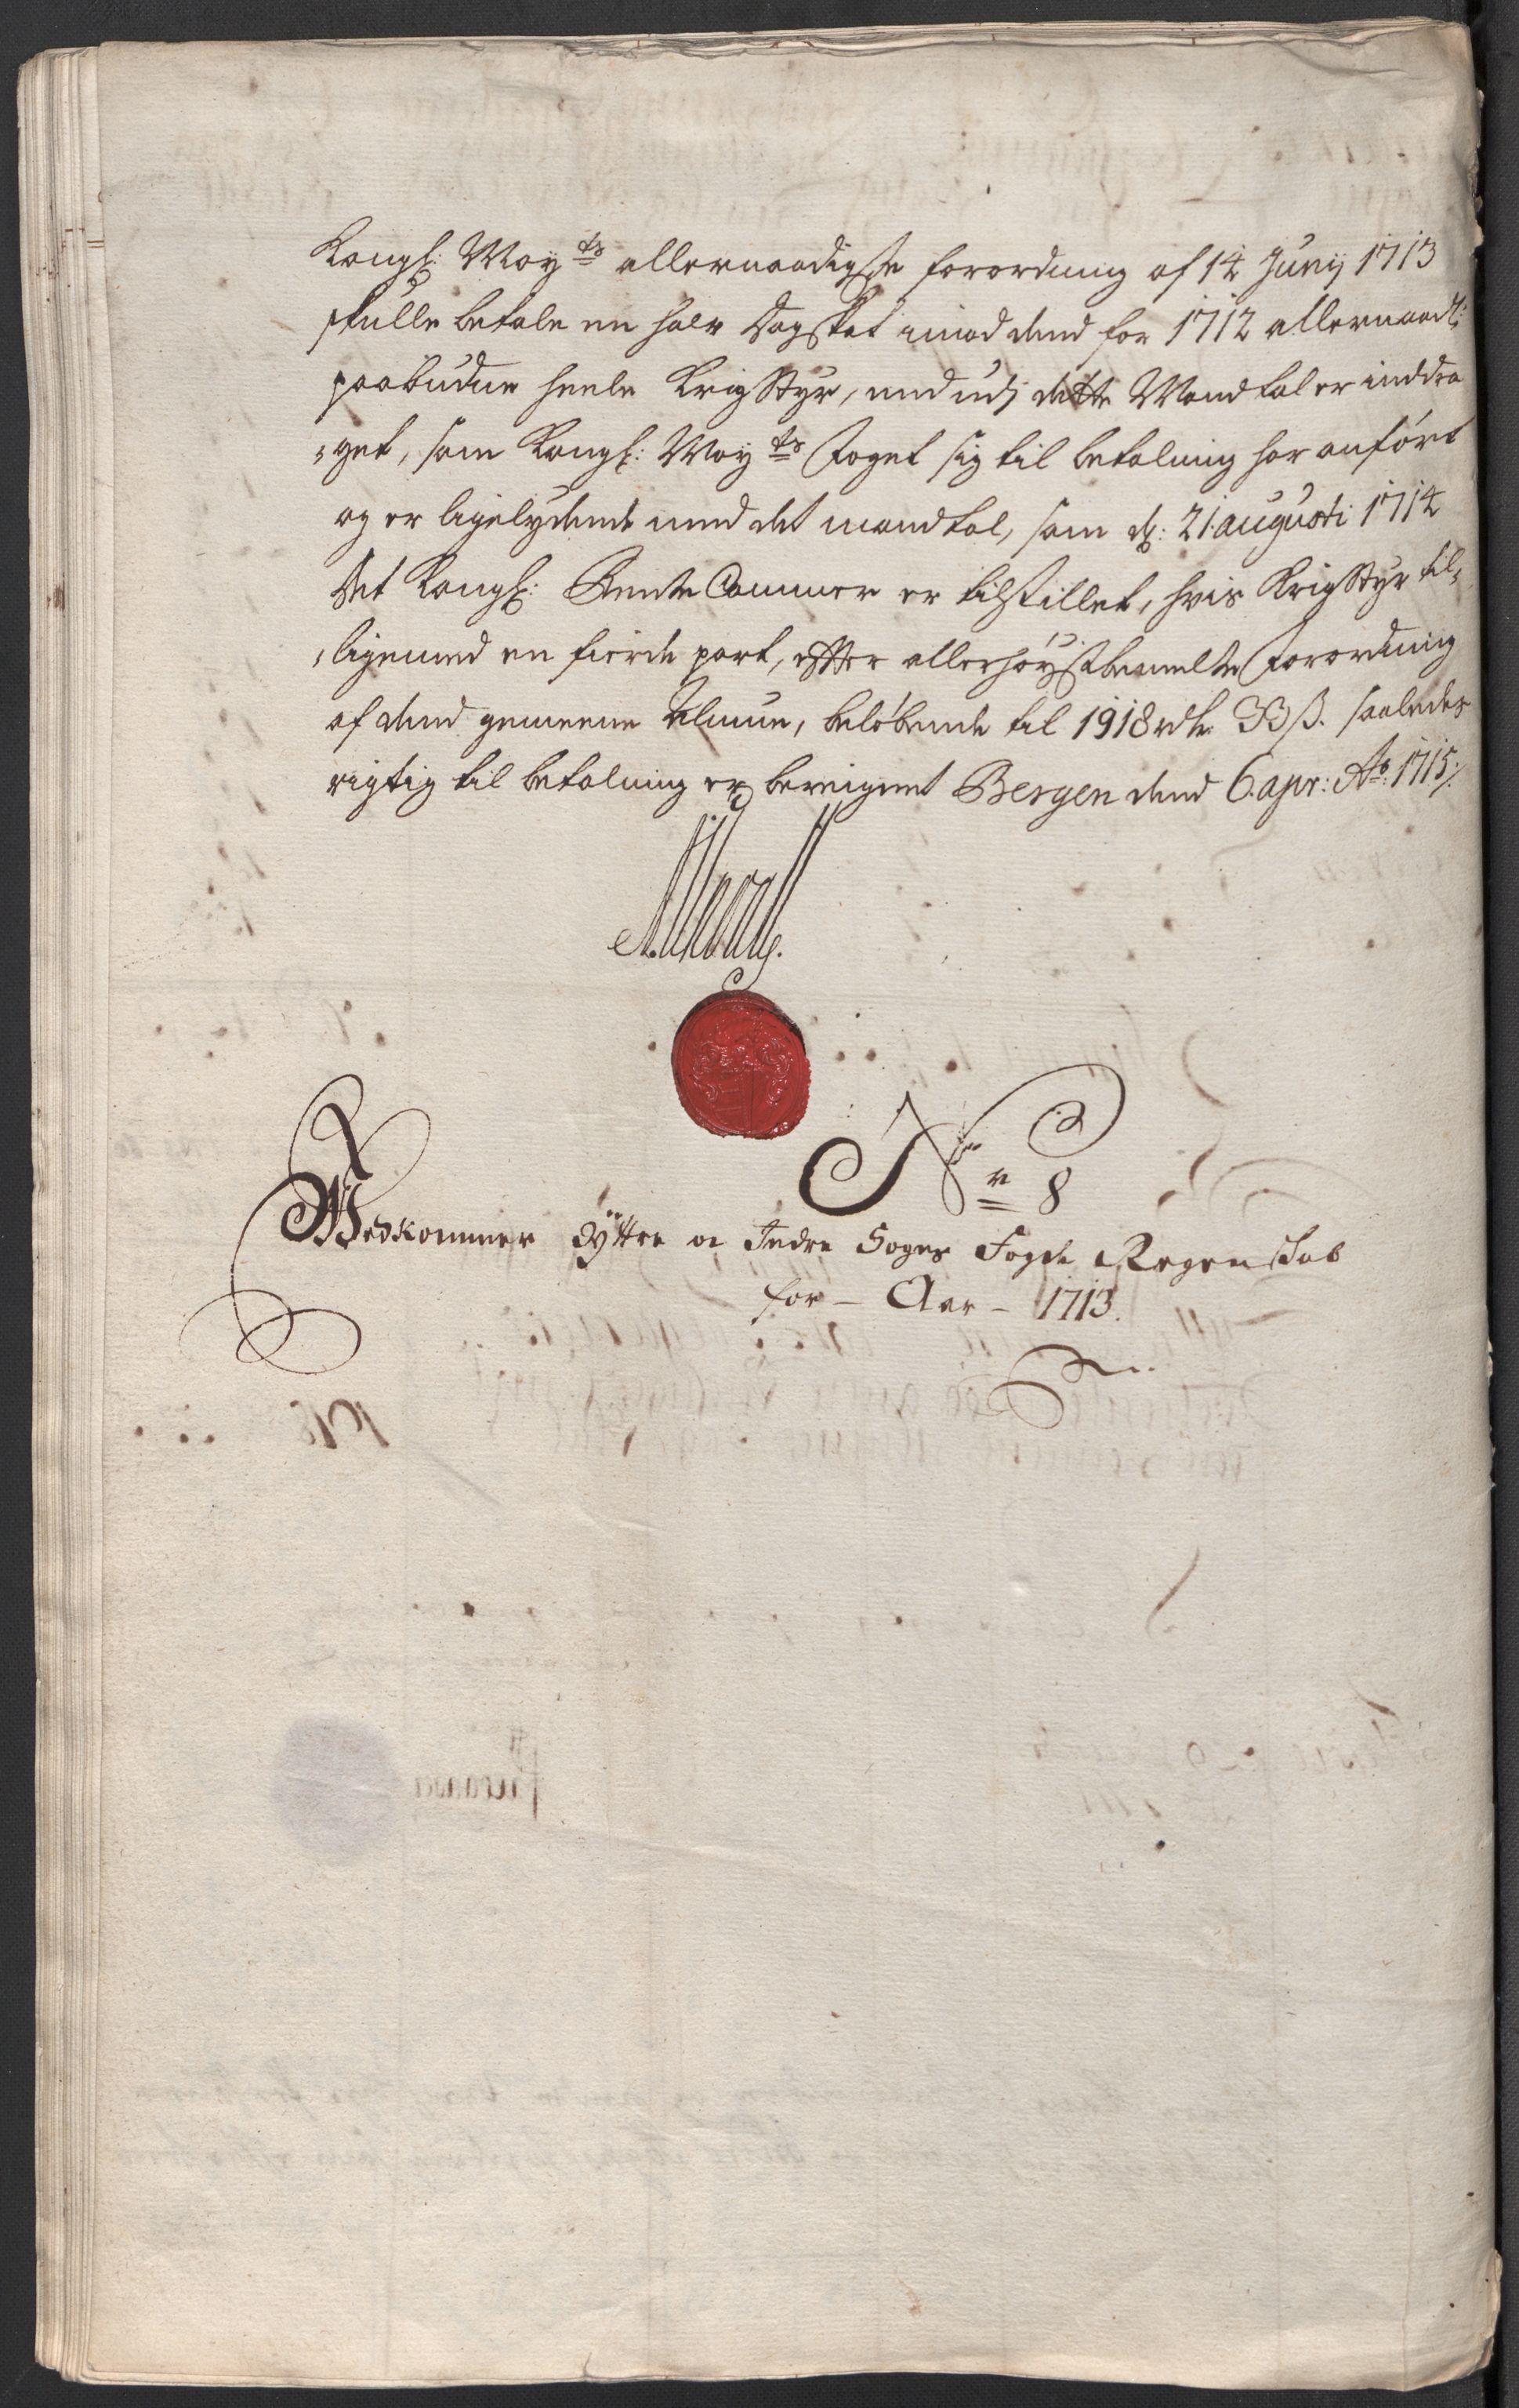 Kongl: May^ts allernaadigste forordning af 14 Junij 1713
skulle betale en halv Dagskat imod dend for 1712 allernaad:
paabudne heele KrigStyr, med udj dette Mandtal er inddra
=get, som Kongl: May^ts Foget sig til betalning har anført
og er ligelydende med det mandtal, som d: 21. augusti 1714
det Kongl: RenteCammer er tilstillet, hvis KrigStyr til=
=ligemed en fierde part, efter allerhøystbemelte Forordning
af dend gemeene Almue, beløbende til 1918 rdr 33 ß. saaledes
rigtig til betalning er bereignet Bergen dend 6. apr: A^o: 1715 ./.
N^r 8
Vedkommer Yttre oc Indre Sogns Fogde Regenskab
for – Aar – 1713.